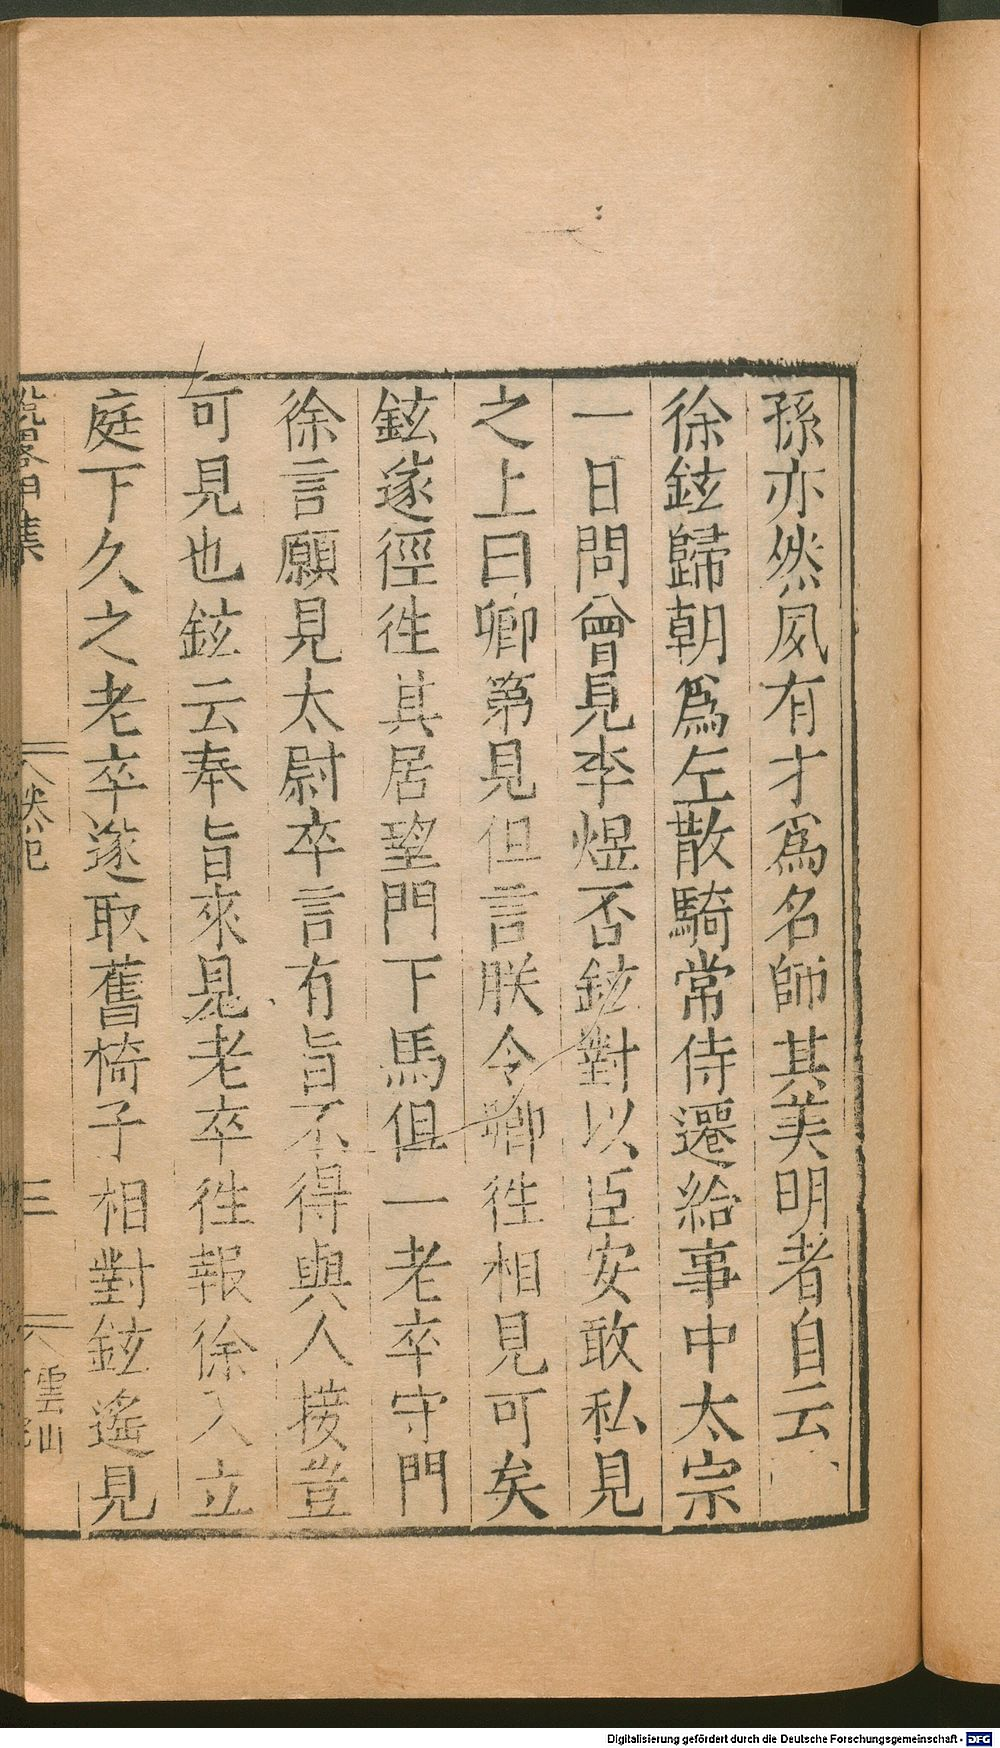 孫亦然夙有才爲名師其美明者自云
徐鉉歸朝爲左散騎常侍遷給事中太宗
一日問曾見李煜否鉉對以臣安敢私見
之上曰卿第見但言朕令卿徃相見可矣
鉉遂徑徃其居望門下馬但一老卒守門
徐言願見太尉卒言有旨不得與人接豈
可見也鉉云奉旨來見老卒徃報徐入立
庭下久之老卒遂取舊椅子相對鉉遙見
說畧甲集
卷
三
雲山
Digitalisierung gefördert durch die Deutsche Forschungsgemeinschaft - DFG